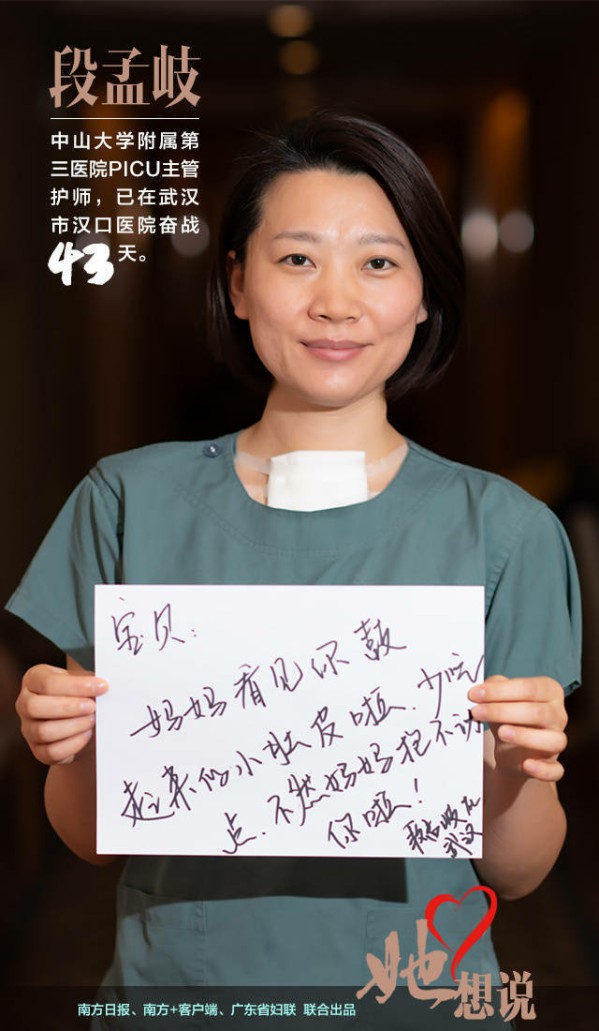 段孟岐
中山大学附属第
三医院PICU主管
护师，已在武汉
市汉口医院奋战
43天。
宝贝：
妈妈看见你鼓
起来的小肚皮啦，少吃
点，不然妈妈抱不动
你啦！
段孟岐在
武汉
她想说
南方日报、南方+客户端、广东省妇联 联合出品